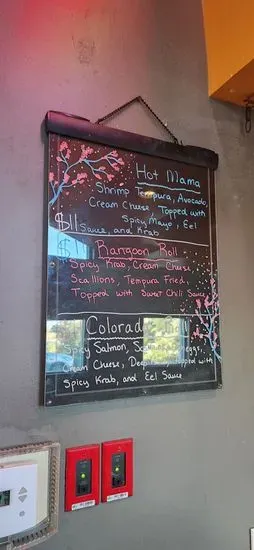 Hot Mama
Shrimp Tempura, Avocado,
Cream Cheese Topped with
Spicy Mayo, Eel
$11 Sauce, and Krab
$ Rangoon Roll
Spicy Krab, Cream Cheese
Scallions, Tempura Fried,
Topped with Sweet Chili Sauce
Colorado
Spicy Salmon,
Cream Cheese, Deep with
Spicy Krab, and Eel Sauce